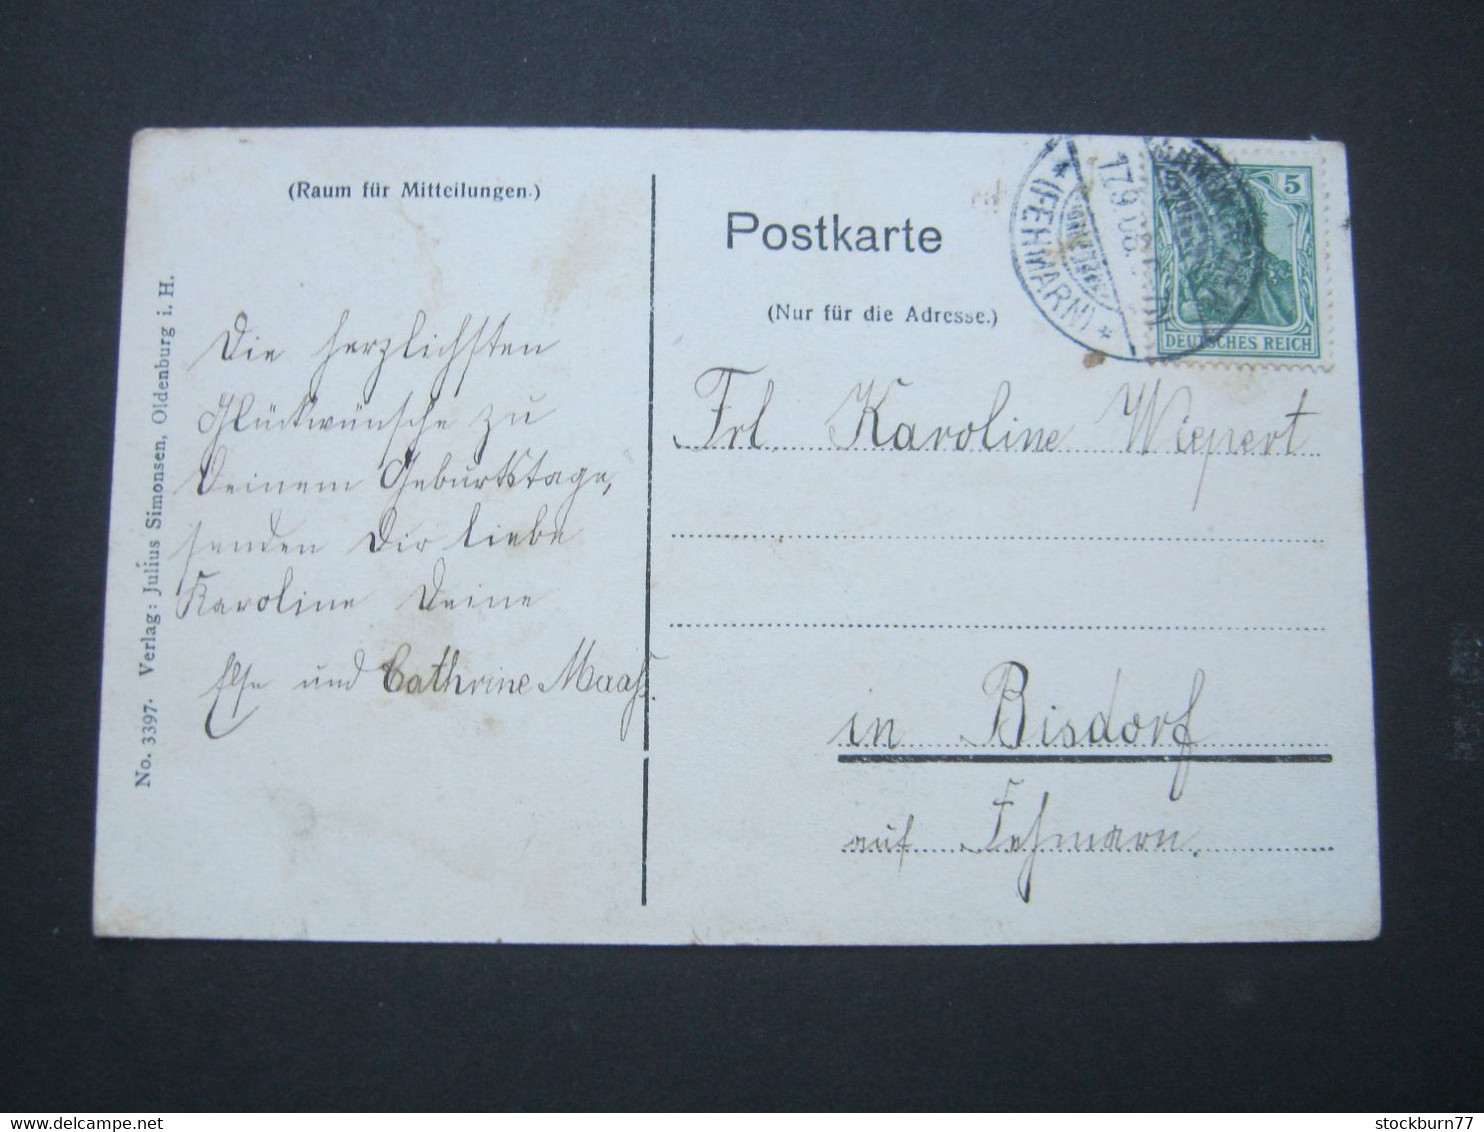 (Raum für Mitteilungen.)
Die herzlichsten
Glückwünsche zu
Deinem Geburtstage,
senden Dir liebe
Karoline Deine
Else und Cathrine Maaß.
No. 3397. Verlag: Julius Simonsen, Oldenburg i. H.
Postkarte
(Nur für die Adresse.)
* (FEHMARN) *
17.9.08.
5
DEUTSCHES REICH
Frl Karoline Wiepert
in Bisdorf
auf Fehmarn.
stockburn77